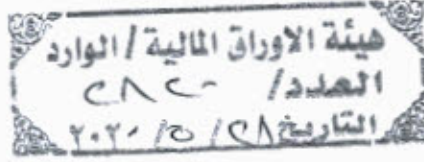 هيئة الاوراق المالية / الوارد
العدد/
التاريخ ٢٨/ ٥/ ٢٠٢٠